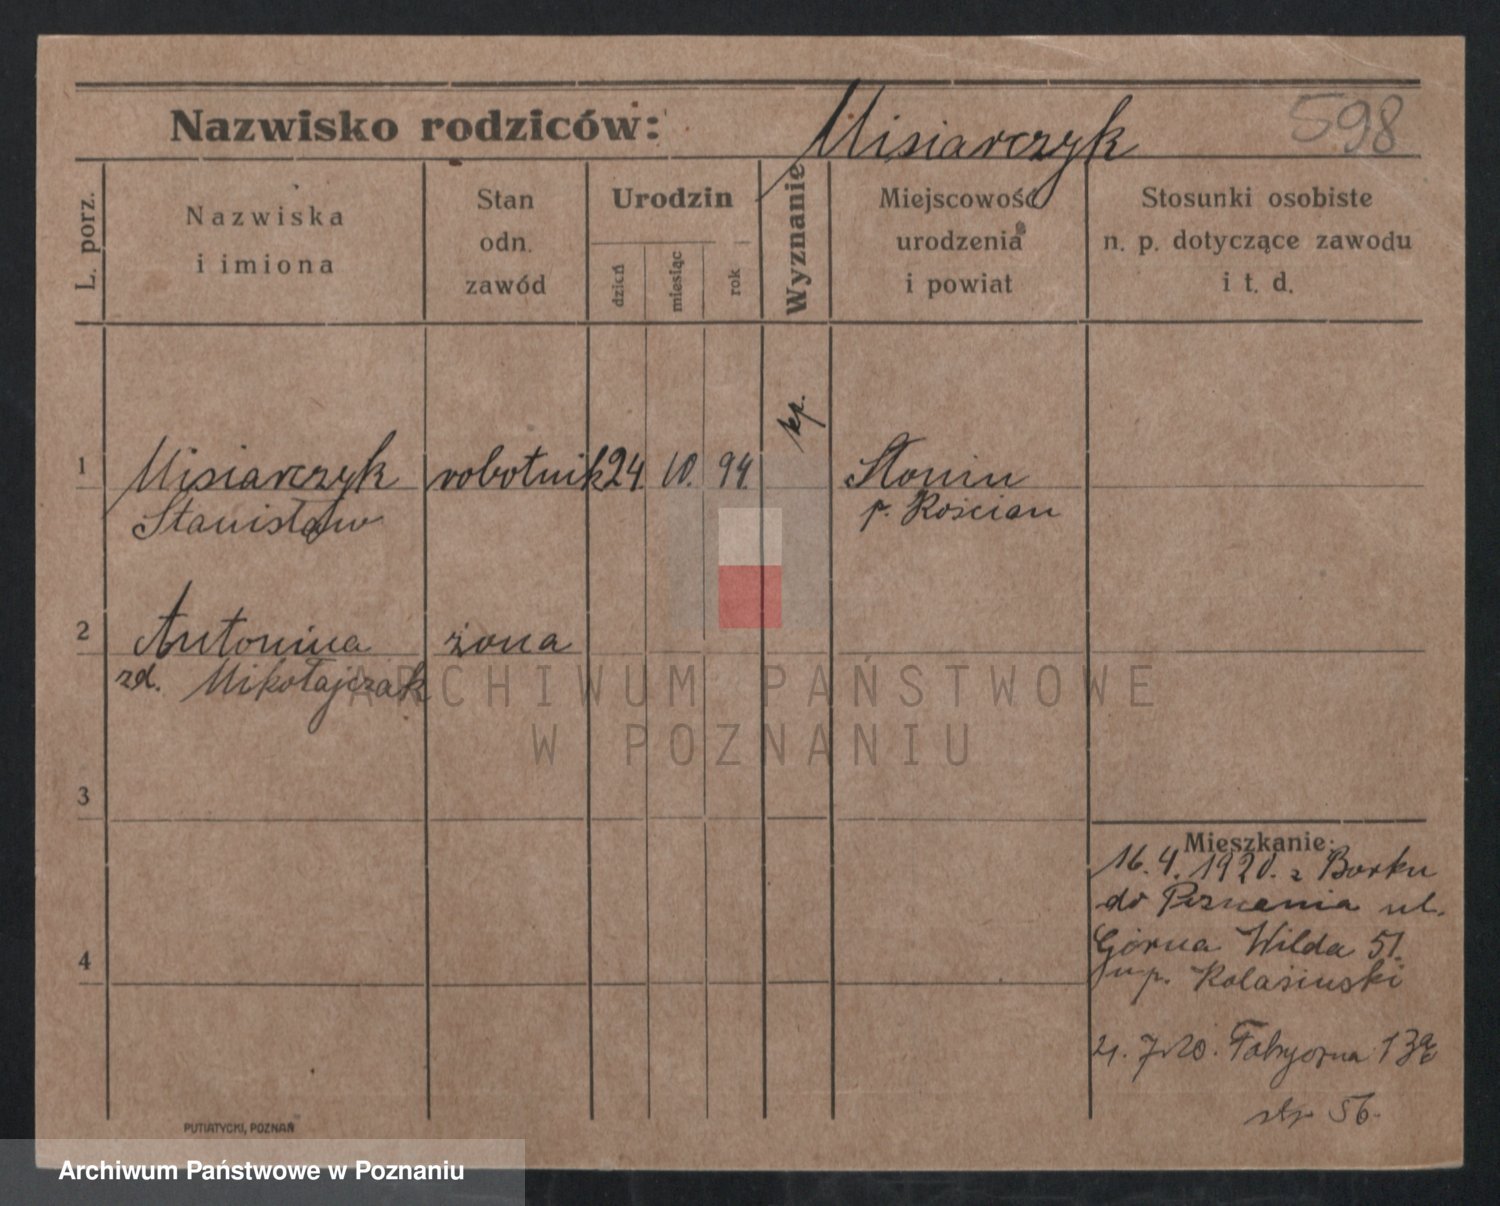 Nazwisko rodziców: Misiarczyk 598
L. porz.
Nazwiska
i imiona
Stan
odn.
zawód
Urodzin
dzień
miesiąc
rok
Wyznanie
Miejscowość
urodzenia
i powiat
Stosunki osobiste
n. p. dotyczące zawodu
i t. d.
1 Misiarczyk robotnik 24. 10. 94. kp. Słonin
Stanisław p. Kościan
2 Antonina żona
zd. Mikołajczak
3
4
Mieszkanie:
16. 4. 1920. z Borku
do Poznania ul.
Górna Wilda 51.
u p. Kolasiński
21. 7. 20. Fabryczna 13
56.
PUTIATYCKI, POZNAŃ
ARCHIWUM PAŃSTWOWE
W POZNANIU
Archiwum Państwowe w Poznaniu